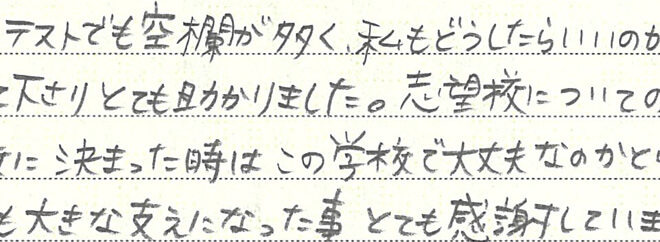 テストでも空欄が多く、私もどうしたらいいのか
て下さりとても助かりました。志望校についての
に決まった時はこの学校で大丈夫なのかと
も大きな支えになった事とても感謝していま